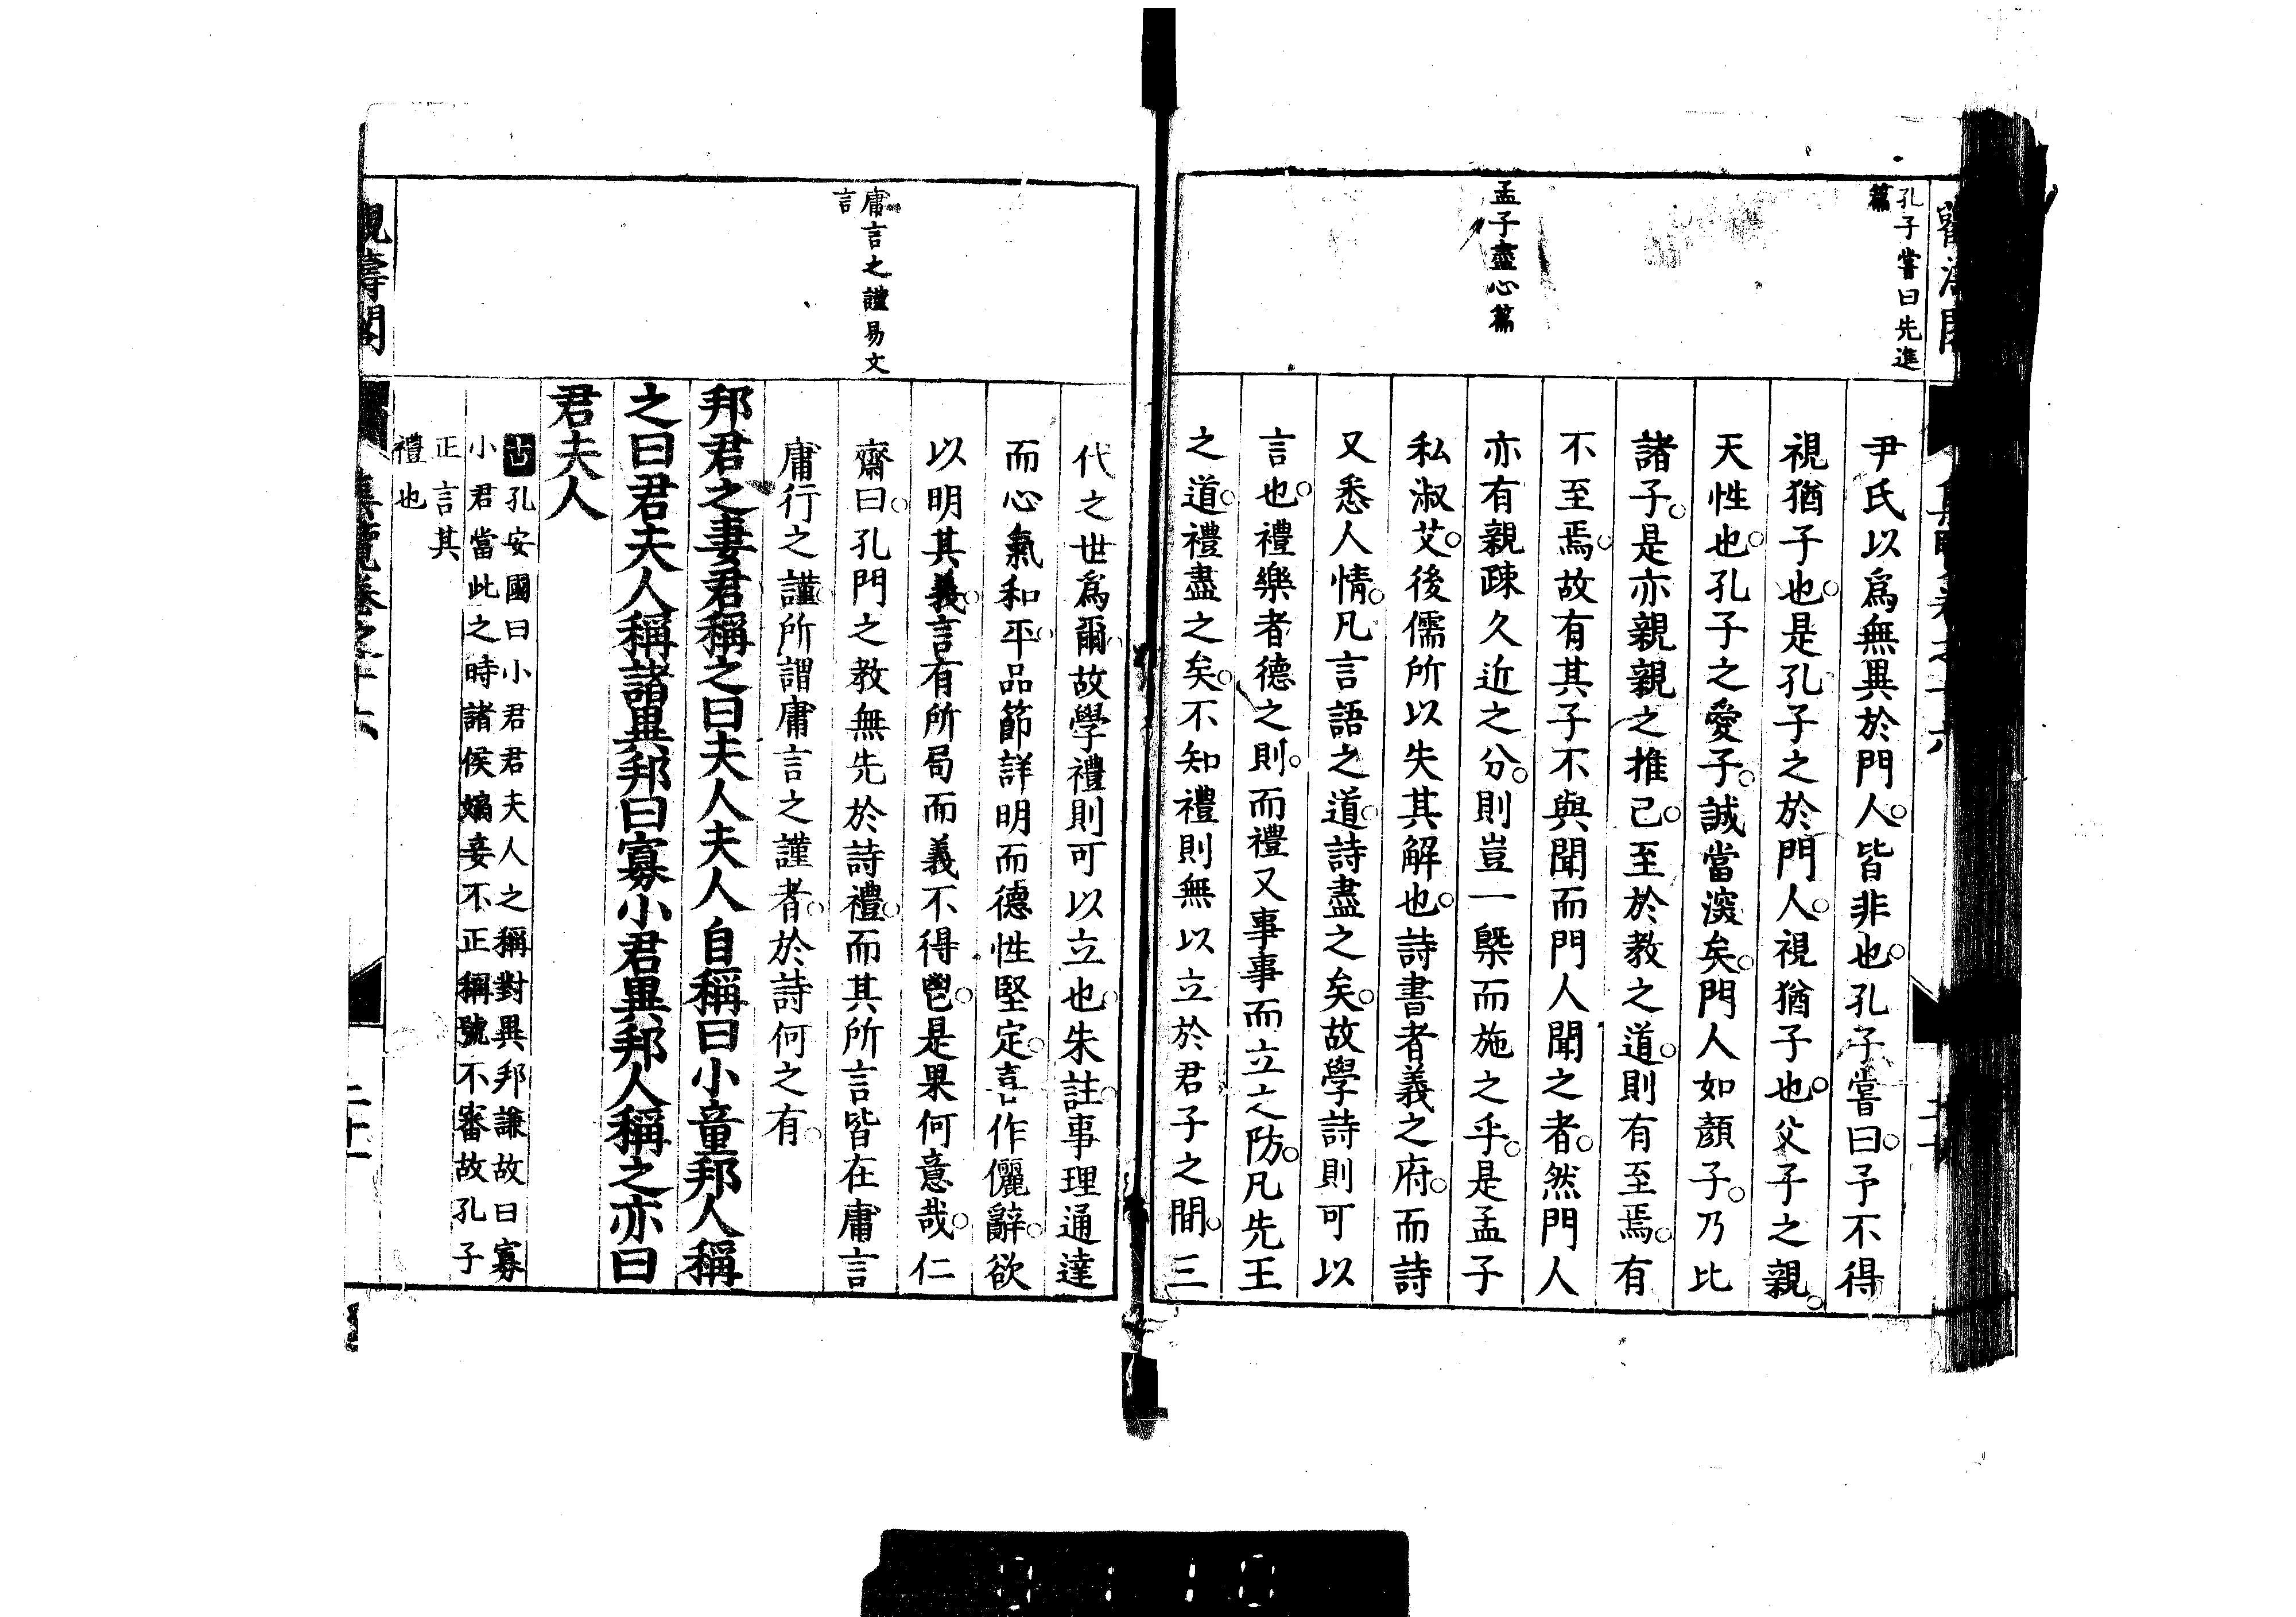 孔子嘗曰先進
篇
孟子盡心篇
尹氏以爲無異於門人。皆非也。孔子嘗曰。予不得
視猶子也。是孔子之於門人。視猶子也。父子之親。
天性也。孔子之愛子。誠當深矣。門人如顏子。乃比
諸子。是亦親親之推已。至於教之道。則有至焉。有
不至焉。故有其子不與聞而門人聞之者。然門人
亦有親疎久近之分。則豈一槩而施之乎。是孟子
私淑艾。後儒所以失其解也。詩書者義之府。而詩
又悉人情。凡言語之道。詩盡之矣。故學詩則可以
言也。禮樂者德之則。而禮又事事而立之防。凡先王
之道。禮盡之矣。不知禮則無以立於君子之間。三
庸言之謹易文
言
代之世爲爾。故學禮則可以立也。朱註。事理通達
而心氣和平。品節詳明而德性堅定。喜作儷辭。欲
以明其義。言有所局而義不得鬯。是果何意哉。仁
齋曰。孔門之教無先於詩禮。而其所言皆在庸言
庸行之謹。所謂庸言之謹者。於詩何之有。
邦君之妻君稱之曰夫人夫人自稱曰小童邦人稱
之曰君夫人稱諸異邦曰寡小君異邦人稱之亦曰
君夫人
古孔安國曰小君君夫人之稱對異邦謙故曰寡
小君當此之時諸侯嫡妾不正稱號不審故孔子
正言其
禮也